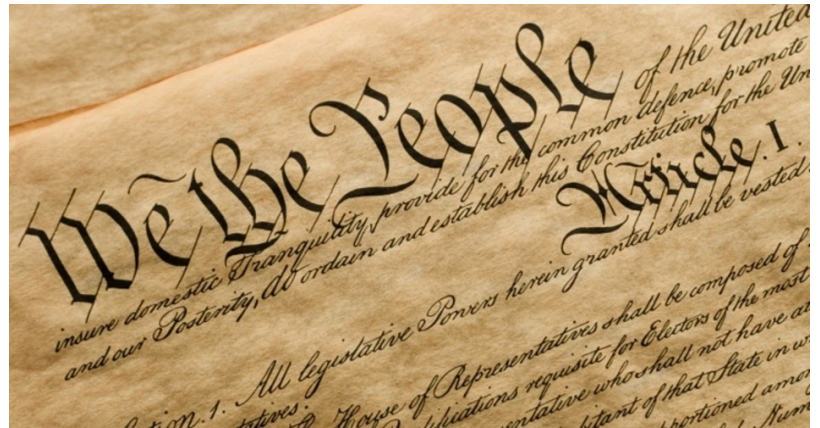 We the People of the United
insure domestic Tranquility, provide for the common defence, promote
and our Posterity, do ordain and establish this Constitution for the Un
Article. I.
ction. 1. All legislative Powers herein granted shall be vested
tatives.
House of Representatives shall be composed of
lifications requisite for Electors of the most
entative who shall not have at
bitant of that State in w
pportioned amon
Num